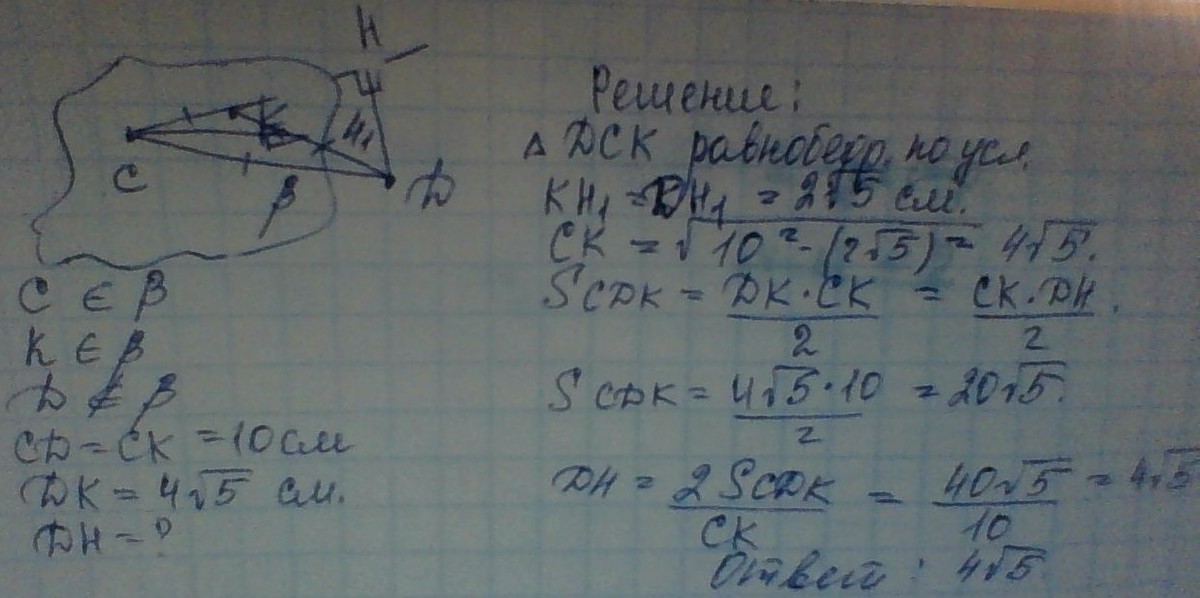 H
K
H₁
C
β
D
C ∈ β
K ∈ β
D ∉ β
CD = CK = 10 см
DK = 4√5 см.
DH = ?
Решение:
Δ DCK равнобедр. по усл.
KH₁ = DH₁ = 2√5 см.
CK = √10² - (2√5)² = 4√5.
SCDK = DK · CK / 2 = CK · DH / 2 .
SCDK = 4√5 · 10 / 2 = 20√5.
DH = 2SCDK / CK = 40√5 / 10 = 4√5
Ответ: 4√5